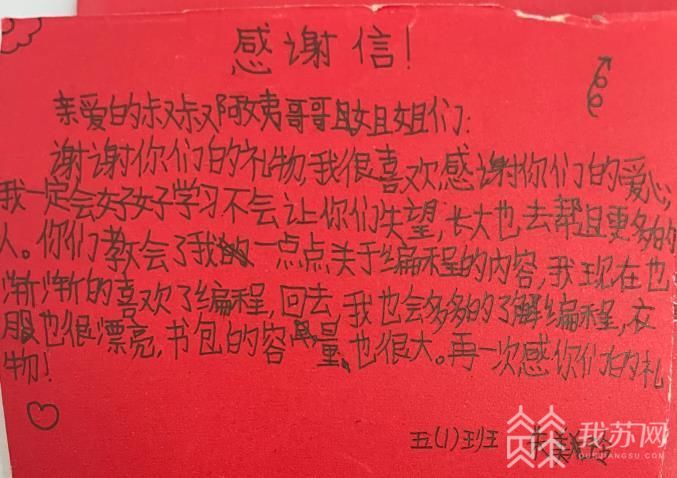 感谢信!
亲爱的叔叔阿姨哥哥姐姐们:
谢谢你们的礼物,我很喜欢,感谢你们的爱心,
我一定会好好学习不会让你们失望,长大也去帮助更多的
人。你们教会了我一点点关于编程的内容,我现在也
渐渐的喜欢了编程,回去,我也会多多的了解编程,衣
服也很漂亮,书包的容量也很大。再一次感你们的礼
物!
五(1)班
我苏网
OURJIANGSU.COM